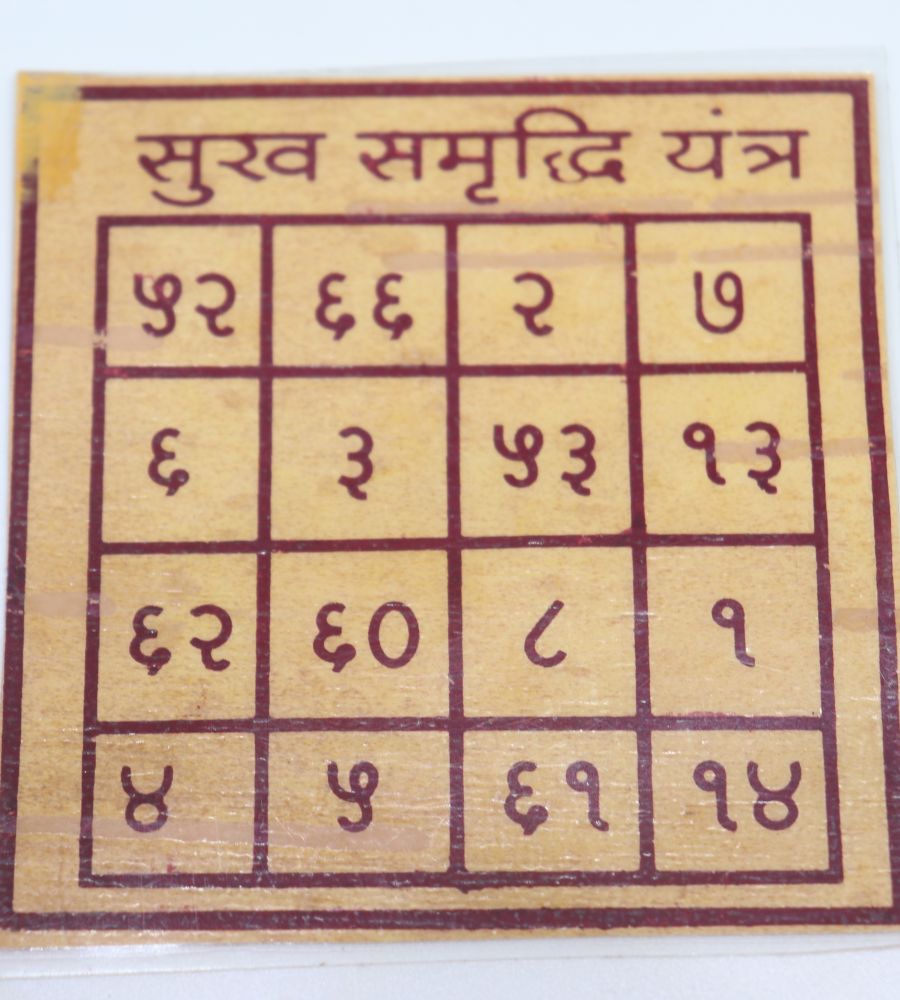 सुख समृद्धि यंत्र
५२ ६६ २ ७
६ ३ ५३ १३
६२ ६० ८ १
४ ५ ६१ १४